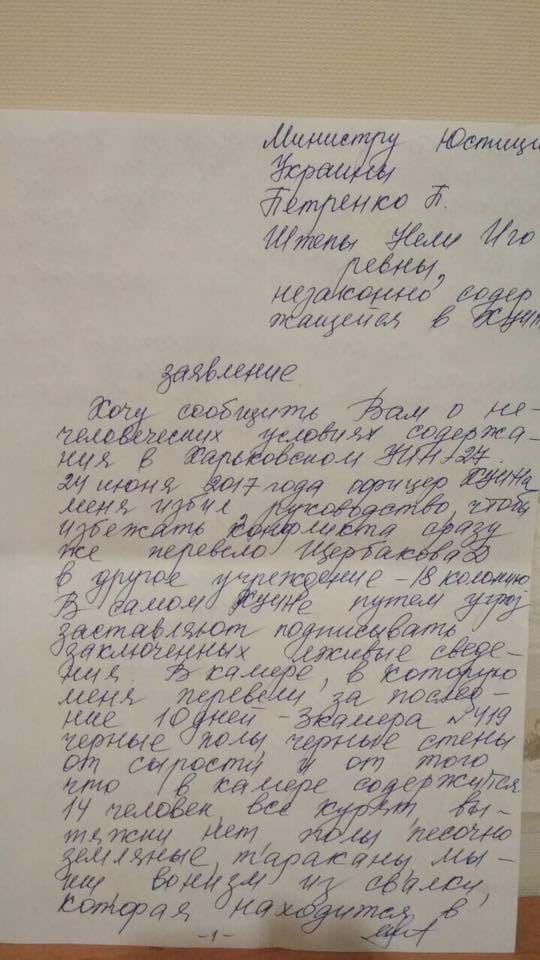 Министру Юстици
Украины
Петренко П.
Штепы Нели Иго
ревны,
незаконно содер
жащейся в ХУИН
заявление.
Хочу сообщить Вам о не-
человеческих условиях содержа-
ния в Харьковском УИН №27.
24 июня 2017 года офицер ХУИНа
меня избил, руководство, чтобы
избежать конфликта сразу
же перевело Щербакова Д
в другое учреждение – 18 колонию
В самом ХУИНе путем угроз
заставляют подписывать
заключенных лживые сведе-
ния. В камере, в которую
меня перевели за послед-
ние 10 дней – 3 камера №419
черные полы черные стены
от сырости и от того
что в камере содержится
14 человек, все курят, вы-
тяжки нет полы песочно
земляные, тараканы, мы-
ши вонизм из свалки,
которая находится в
-1-